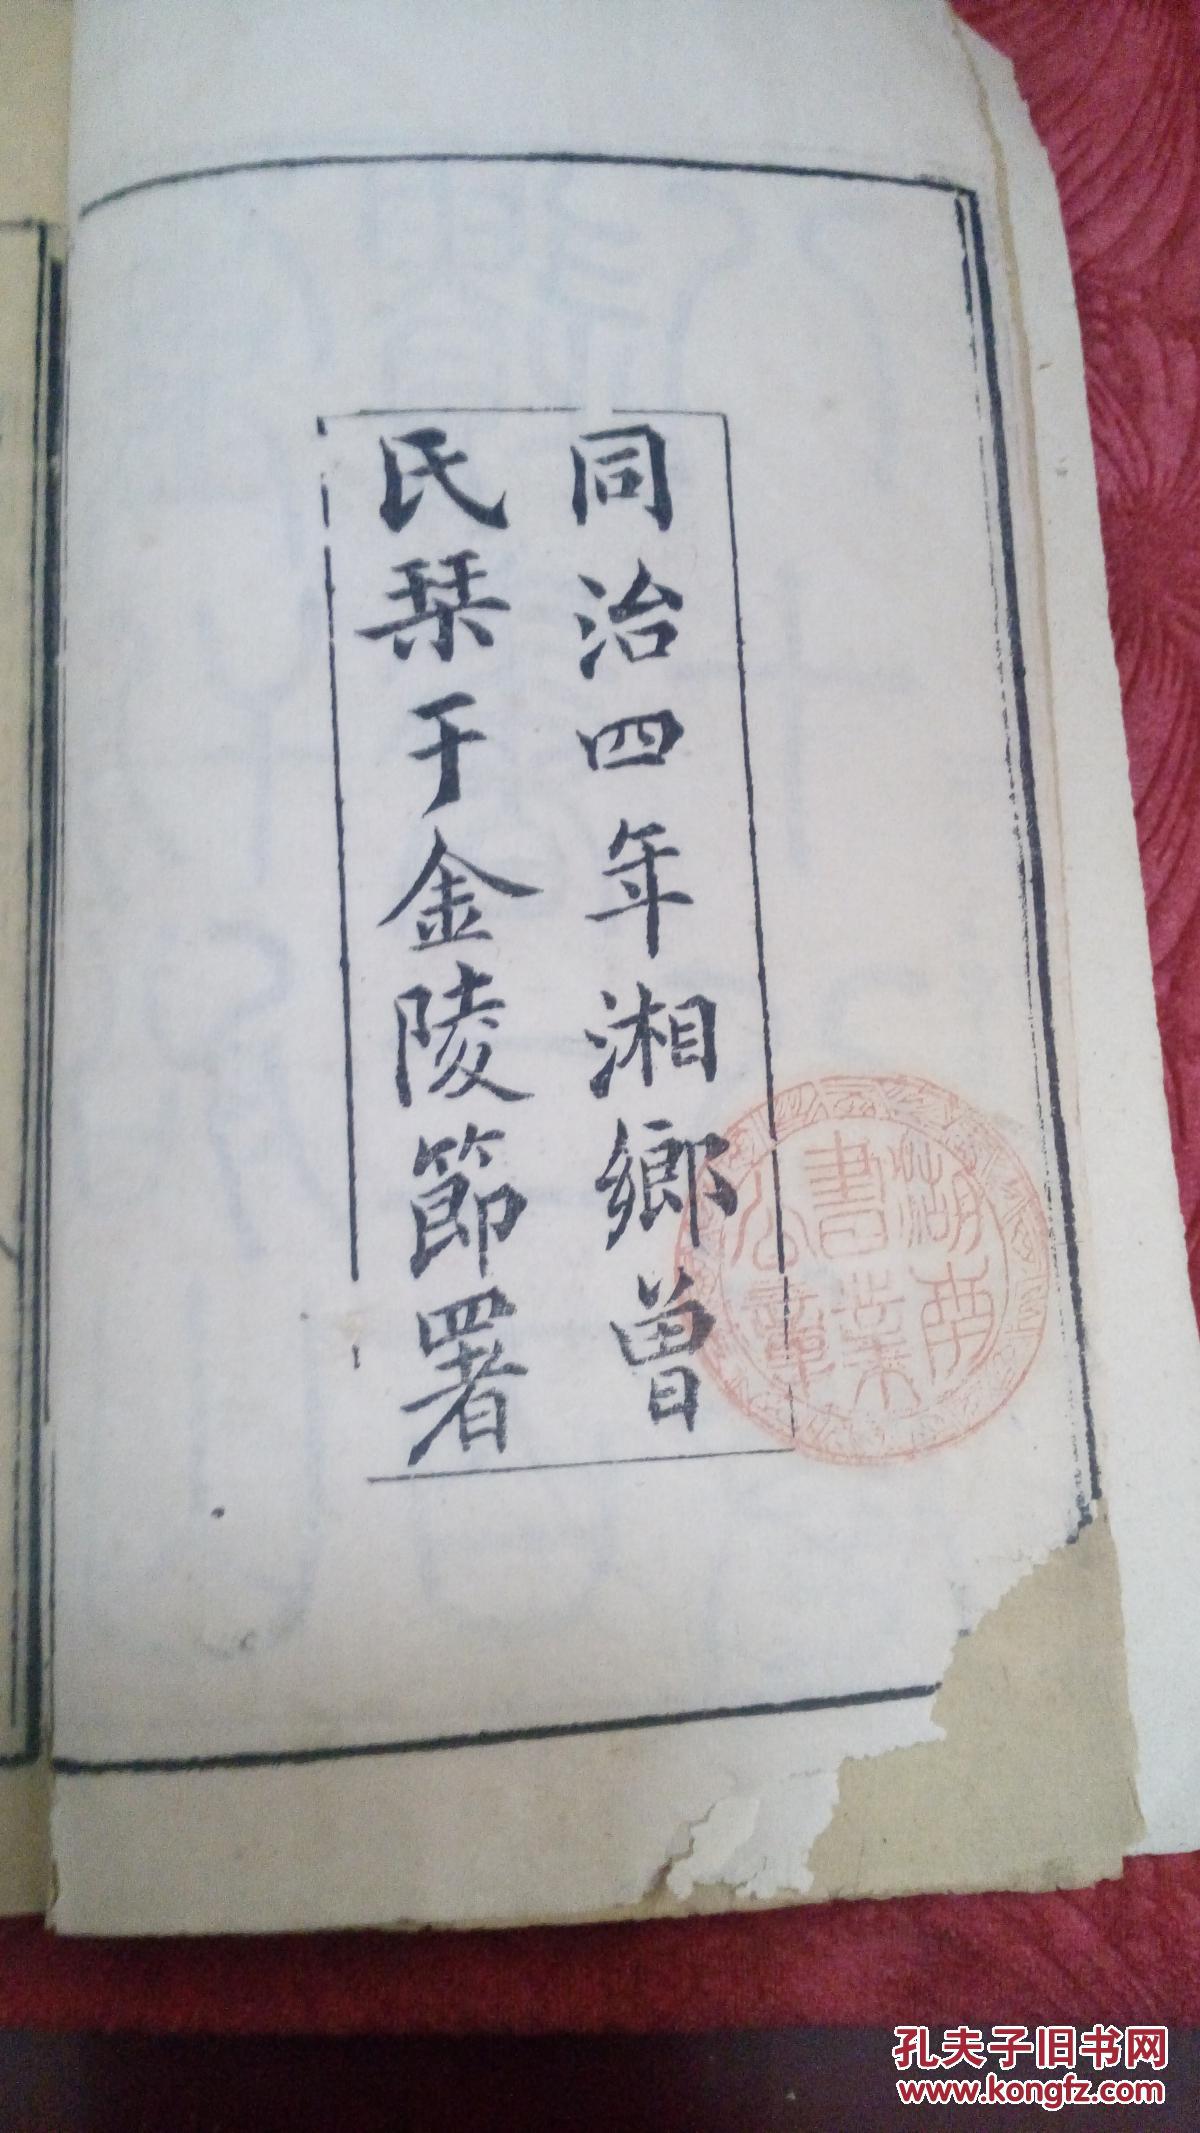 同治四年湘鄉曾
氏栞于金陵節署
湖南
書業
公章
孔夫子旧书网
www.kongfz.com